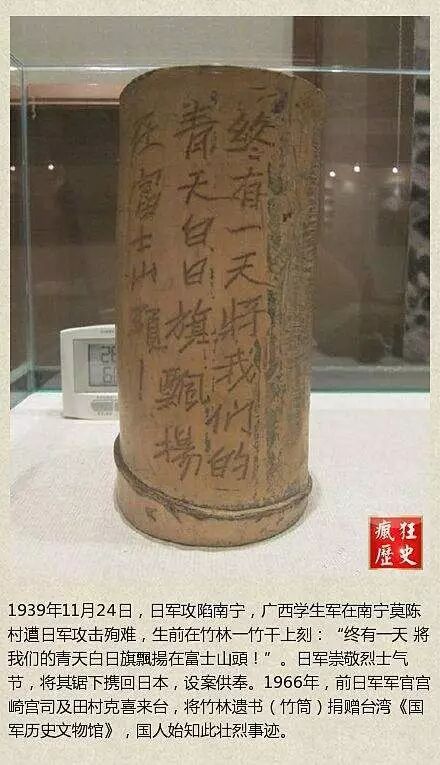 終有一天將我们的
青天白日旗飄揚
在富士山頭！
瘋狂
歷史
1939年11月24日，日军攻陷南宁，广西学生军在南宁莫陈
村遭日军攻击殉难，生前在竹林一竹干上刻：“终有一天 將
我们的青天白日旗飄揚在富士山頭！”。日军崇敬烈士气
节，将其锯下携回日本，设案供奉。1966年，前日军军官宫
崎宫司及田村克喜来台，将竹林遗书（竹筒）捐赠台湾《国
军历史文物馆》，国人始知此壮烈事迹。